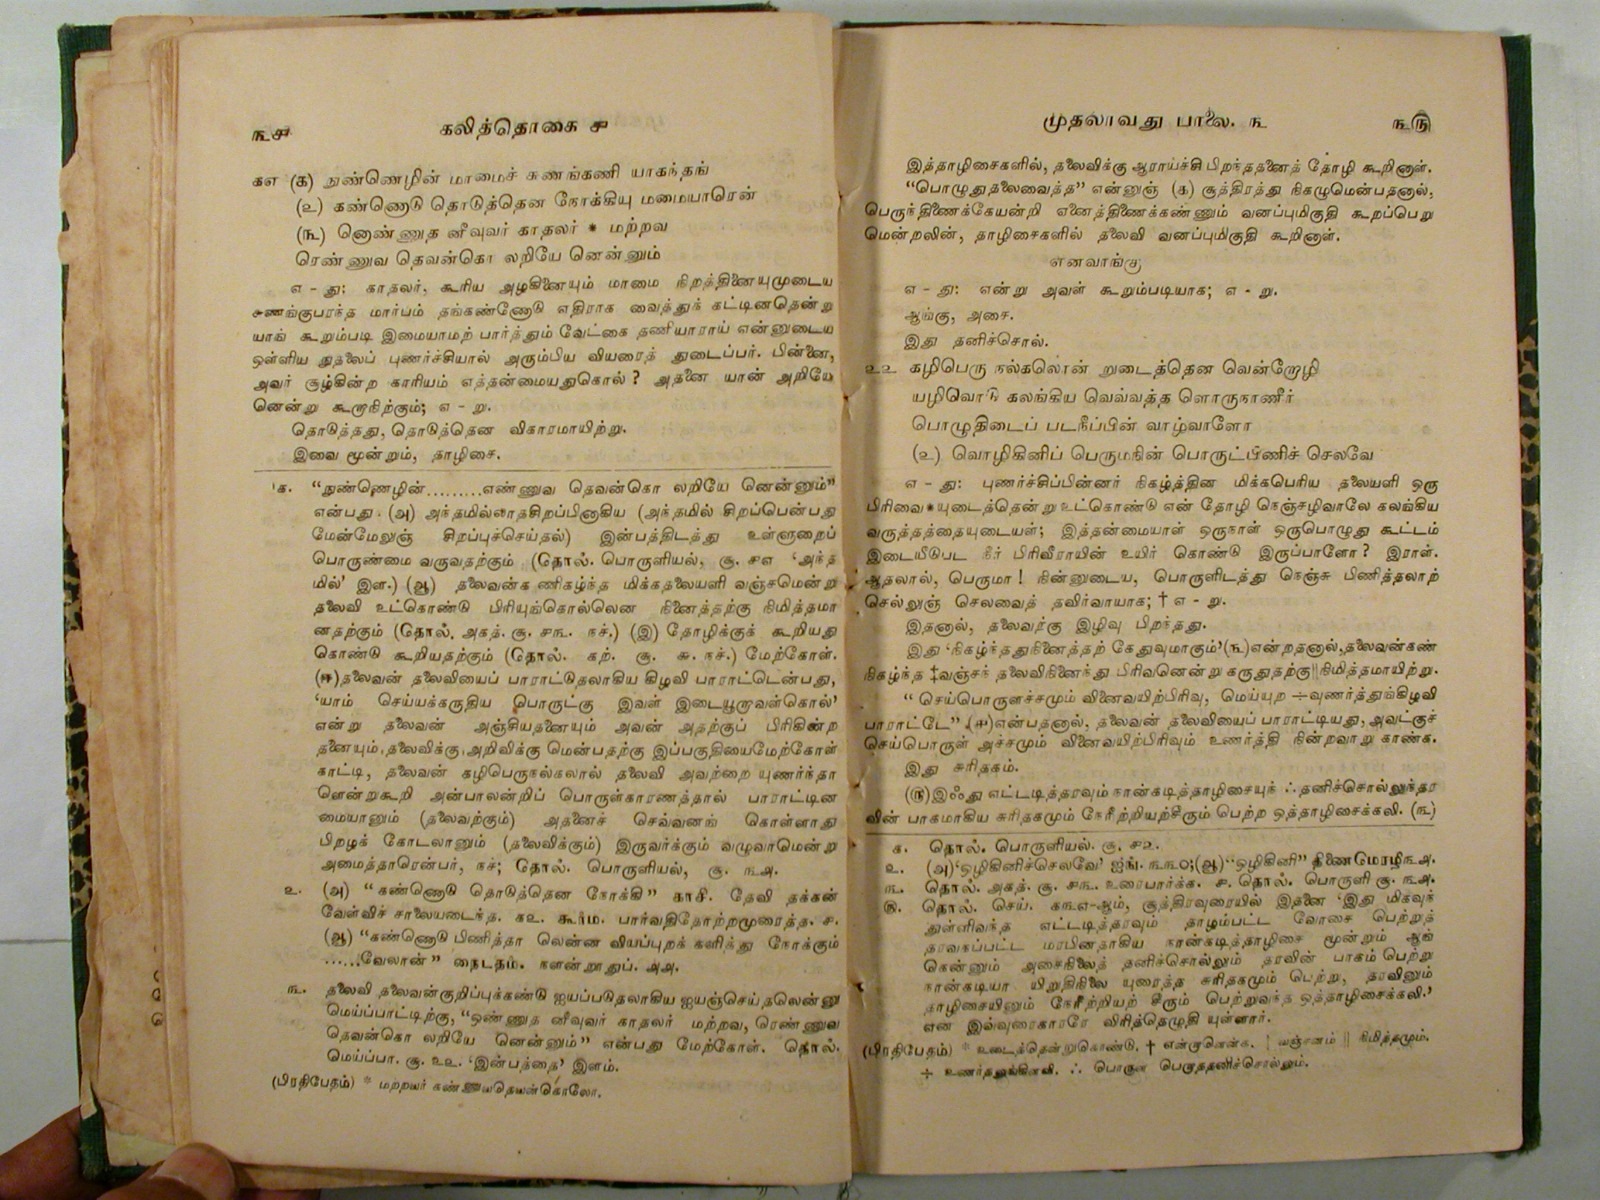 ௩௪
கலித்தொகை ௪
௧௭ (௧) நுண்ணெழின் மாமைச் சுணங்கணி யாகந்தங்
(௨) கண்ணொடு தொடுத்தென நோக்கியு மமையாரென்
(௩) னொண்ணுத னீவுவர் காதலர் * மற்றவ
ரெண்ணுவ தெவன்கொ லறியே னென்னும்
எ - து: காதலர், கூரிய அழகினையும் மாமை நிறத்தினையுமுடைய
சுணங்குபரந்த மார்பம் தங்கண்ணோடு எதிராக வைத்துக் கட்டினதென்று
யாங் கூறும்படி இமையாமற் பார்த்தும் வேட்கை தணியாராய் என்னுடைய
ஒள்ளிய நுதலைப் புணர்ச்சியால் அரும்பிய வியரைத் துடைப்பர். பின்னை,
அவர் சூழ்கின்ற காரியம் எத்தன்மையதுகொல்? அதனை யான் அறியே
னென்று கூறாநிற்கும்; எ - று.
தொடுத்தது, தொடுத்தென விகாரமாயிற்று.
இவை மூன்றும், தாழிசை.
௧. “நுண்ணெழின்.........எண்ணுவ தெவன்கொ லறியே னென்னும்”
என்பது (அ) அந்தமில்லாதசிறப்பினாகிய (அந்தமில் சிறப்பென்பது
மேன்மேலுஞ் சிறப்புச்செய்தல்) இன்பத்திடத்து உள்ளுறைப்
பொருண்மை வருவதற்கும் (தொல். பொருளியல், சூ. ௪௭ ‘அந்த
மில்’ இள.) (ஆ) தலைவன்க ணிகழ்ந்த மிக்கதலையளி வஞ்சமென்று
தலைவி உட்கொண்டு பிரியுங்கொல்லென நினைத்தற்கு நிமித்தமா
னதற்கும் (தொல். அகத். சூ. ௪௩. நச்.) (இ) தோழிக்குக் கூறியது
கொண்டு கூறியதற்கும் (தொல். கற். சூ. ௬. நச்.) மேற்கோள்.
(ஈ)தலைவன் தலைவியைப் பாராட்டுதலாகிய கிழவி பாராட்டென்பது,
‘யாம் செய்யக்கருதிய பொருட்கு இவள் இடையூறாவள்கொல்’
என்று தலைவன் அஞ்சியதனையும் அவன் அதற்குப் பிரிகின்ற
தனையும், தலைவிக்கு அறிவிக்கு மென்பதற்கு இப்பகுதியைமேற்கோள்
காட்டி, தலைவன் கழிபெருநல்கலால் தலைவி அவற்றை யுணர்ந்தா
ளென்றுகூறி அன்பாலன்றிப் பொருள்காரணத்தால் பாராட்டின
மையானும் (தலைவற்கும்) அதனைச் செவ்வனங் கொள்ளாது
பிறழக் கோடலானும் (தலைவிக்கும்) இருவர்க்கும் வழுவாமென்று
அமைத்தாரென்பர், நச்; தொல். பொருளியல், சூ. ௩௮.
௨. (அ) “கண்ணொடு தொடுத்தென நோக்கி” காசி. தேவி தக்கன்
வேள்விச் சாலையடைந்த. ௧௨. கூர்ம. பார்வதிதோற்றமுரைத்த. ௪.
(ஆ) “கண்ணொடு பிணித்தா லென்ன வியப்புறக் களித்து நோக்கும்
......வேலான்” நைடதம். நளன்றூதுப். ௮௮.
௩. தலைவி தலைவன்குறிப்புக்கண்டு ஐயப்படுதலாகிய ஐயஞ்செய்தலென்னு
மெய்ப்பாட்டிற்கு, “ஒண்ணுத னீவுவர் காதலர் மற்றவ, ரெண்ணுவ
தெவன்கொ லறியே னென்னும்” என்பது மேற்கோள். தொல்.
மெய்ப்பா. சூ. ௨௨. ‘இன்பத்தை’ இளம்.
(பிரதிபேதம்) * மற்றயர்
முதலாவது பாலை. ௩
௩௫
இத்தாழிசைகளில், தலைவிக்கு ஆராய்ச்சி பிறந்ததனைத் தோழி கூறினாள்.
“பொழுதுதலைவைத்த” என்னுஞ் (௧) சூத்திரத்து நிகழுமென்பதனால்,
பெருந்திணைக்கேயன்றி ஏனைத்திணைக்கண்ணும் வனப்புமிகுதி கூறப்பெறு
மென்றலின், தாழிசைகளில் தலைவி வனப்புமிகுதி கூறினாள்.
எனவாங்கு
எ - து: என்று அவள் கூறும்படியாக; எ - று.
ஆங்கு, அசை.
இது தனிச்சொல்.
௨௨ கழிபெரு நல்கலொன் றுடைத்தென வென்றோழி
யழிவொடு கலங்கிய வெவ்வத்த ளொருநாணீர்
பொழுதிடைப் படநீப்பின் வாழ்வாளோ
(௨) வொழிகினிப் பெருமநின் பொருட்பிணிச் செலவே
எ - து: புணர்ச்சிப்பின்னர் நிகழ்த்தின மிக்கபெரிய தலையளி ஒரு
பிரிவை*யுடைத்தென்று உட்கொண்டு என் தோழி நெஞ்சழிவாலே கலங்கிய
வருத்தத்தையுடையள்; இத்தன்மையாள் ஒருநாள் ஒருபொழுது கூட்டம்
இடையீடுபட நீர் பிரிவீராயின் உயிர் கொண்டு இருப்பாளோ? இராள்.
ஆதலால், பெரும! நின்னுடைய, பொருளிடத்து நெஞ்சு பிணித்தலாற்
செல்லுஞ் செலவைத் தவிர்வாயாக; † எ - று.
இதனால், தலைவற்கு இழிவு பிறந்தது.
இது ‘நிகழ்ந்ததுநினைத்தற் கேதுவுமாகும்’(௩)என்றதனால்,தலைவன்கண்
நிகழ்ந்த ‡வஞ்சந் தலைவிநினைந்து பிரிவனென்று கருதுதற்கு||நிமித்தமாயிற்று.
“ செய்பொருளச்சமும் வினைவயிற்பிரிவு, மெய்யுற ÷வுணர்த்துங்கிழவி
பாராட்டே” (௪)என்பதனால், தலைவன் தலைவியைப் பாராட்டியது, அவட்குச்
செய்பொருள் அச்சமும் வினைவயிற்பிரிவும் உணர்த்தி நின்றவாறு காண்க.
இது சுரிதகம்.
(௫)இஃது எட்டடித்தரவும் நான்கடித்தாழிசையுந் ∴தனிச்சொல்லுந்தர
வின் பாகமாகிய சுரிதகமும் நேரீற்றியற்சீரும் பெற்ற ஒத்தாழிசைக்கலி. (௩)
௧. தொல். பொருளியல். சூ. ௪௨.
௨. (அ)‘ஒழிகினிச்செலவே’ ஐங். ௩௩௦;(ஆ)“ஒழிகினி” திணைமொழி௩௮.
௩. தொல். அகத். சூ. ௪௩. உரைபார்க்க. ௪. தொல். பொருளி சூ. ௩௮.
௫. தொல். செய். ௧௩௭-ஆம், சூத்திரவுரையில் இதனை ‘இது மிகவுந்
துள்ளிவந்த எட்டடித்தரவும் தாழம்பட்ட வோசை பெற்றுத்
தரவகப்பட்ட மரபினதாகிய நான்கடித்தாழிசை மூன்றும் ஆங்
கென்னும் அசைநிலைத் தனிச்சொல்லும் தரவின் பாகம் பெற்று
நான்கடியா யிறுதிநிலை யுரைத்த சுரிதகமும் பெற்று, தரவினும்
தாழிசையினும் நேரீற்றியற் சீரும் பெற்றுவந்த ஒத்தாழிசைக்கலி.’
என இவ்வுரைகாரரே விரித்தெழுதி யுள்ளார்.
(பிரதிபேதம்) * உடைத்தென்றுகொண்டு. † என்றானென்க. ‡ வஞ்சனம் || நிமித்தமும்.
÷ உணர்தலுங்கிளவி. ∴ பொருள பெருததனிச்சொல்லும்.